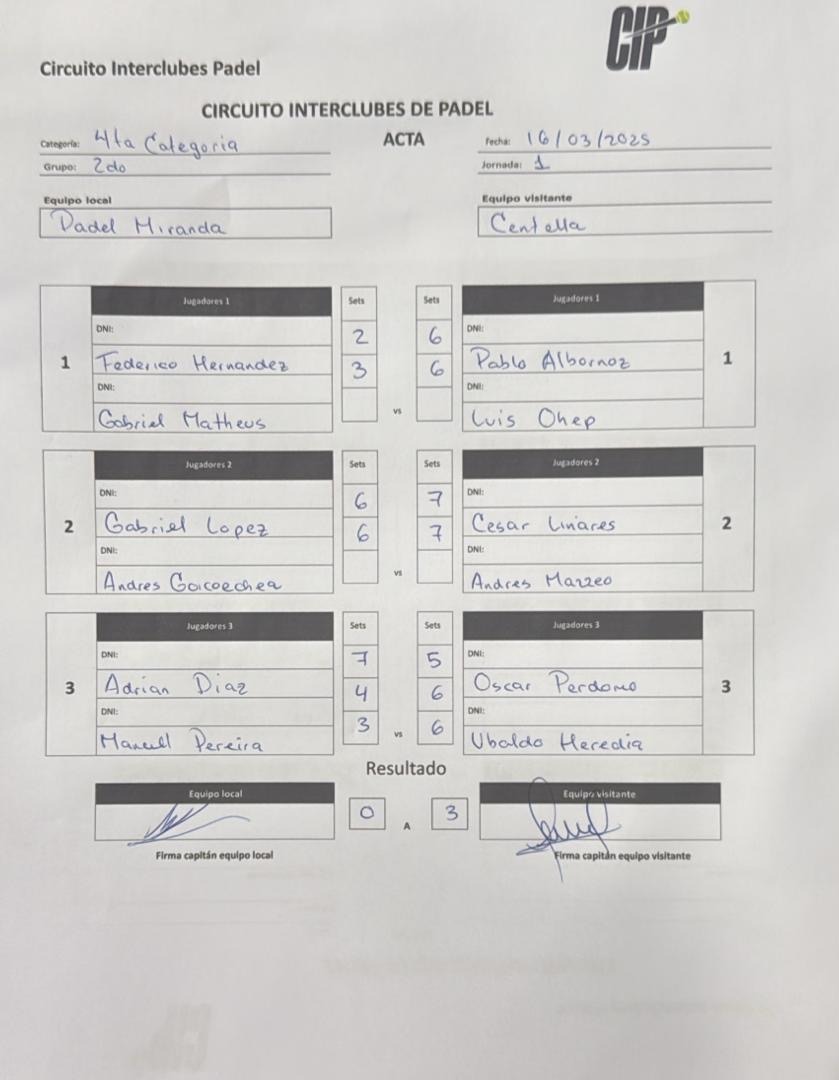 CIP
Circuito Interclubes Padel
CIRCUITO INTERCLUBES DE PADEL
ACTA
Categoría: 4ta Categoria
Grupo: 2do
Fecha: 16/03/2025
Jornada: 1
Equipo local
Padel Miranda
Equipo visitante
Centella
1
Jugadores 1
Sets
Sets
Jugadores 1
1
DNI:
2
6
DNI:
Federico Hernandez
3
6
Pablo Albornoz
DNI:
vs
DNI:
Gabriel Matheus
Luis Ohep
2
Jugadores 2
Sets
Sets
Jugadores 2
2
DNI:
6
7
DNI:
Gabriel Lopez
6
7
Cesar Linares
DNI:
vs
DNI:
Andres Goicoechea
Andres Mazzeo
3
Jugadores 3
Sets
Sets
Jugadores 3
3
DNI:
7
5
DNI:
Adrian Diaz
4
6
Oscar Perdomo
DNI:
3
vs
6
DNI:
Manuel Pereira
Ubaldo Heredia
Resultado
Equipo local
0
A
3
Equipo visitante
Firma capitán equipo local
Firma capitán equipo visitante